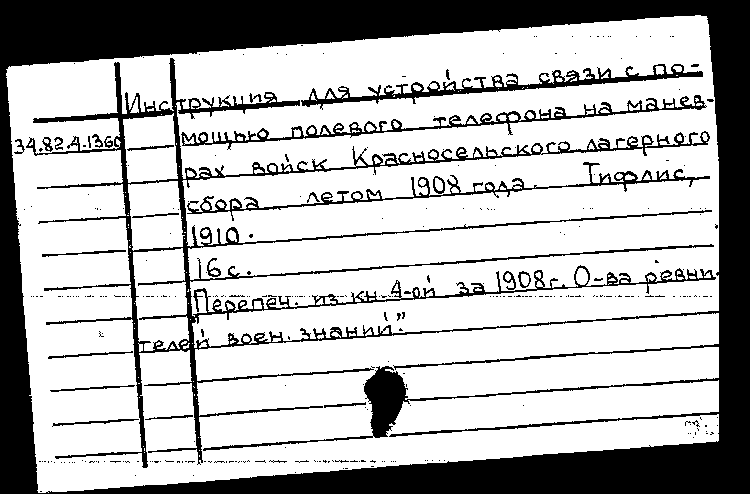 Инструкция для устройства связи с по-
34.82.4.1360 мощью полевого телефона на манев-
рах войск Красносельского лагерного
сбора летом 1908 года. Тифлис,
1910.
16 с.
"Перепеч. из кн. 4-ой за 1908 г. О-ва ревни-
телей воен. знаний."